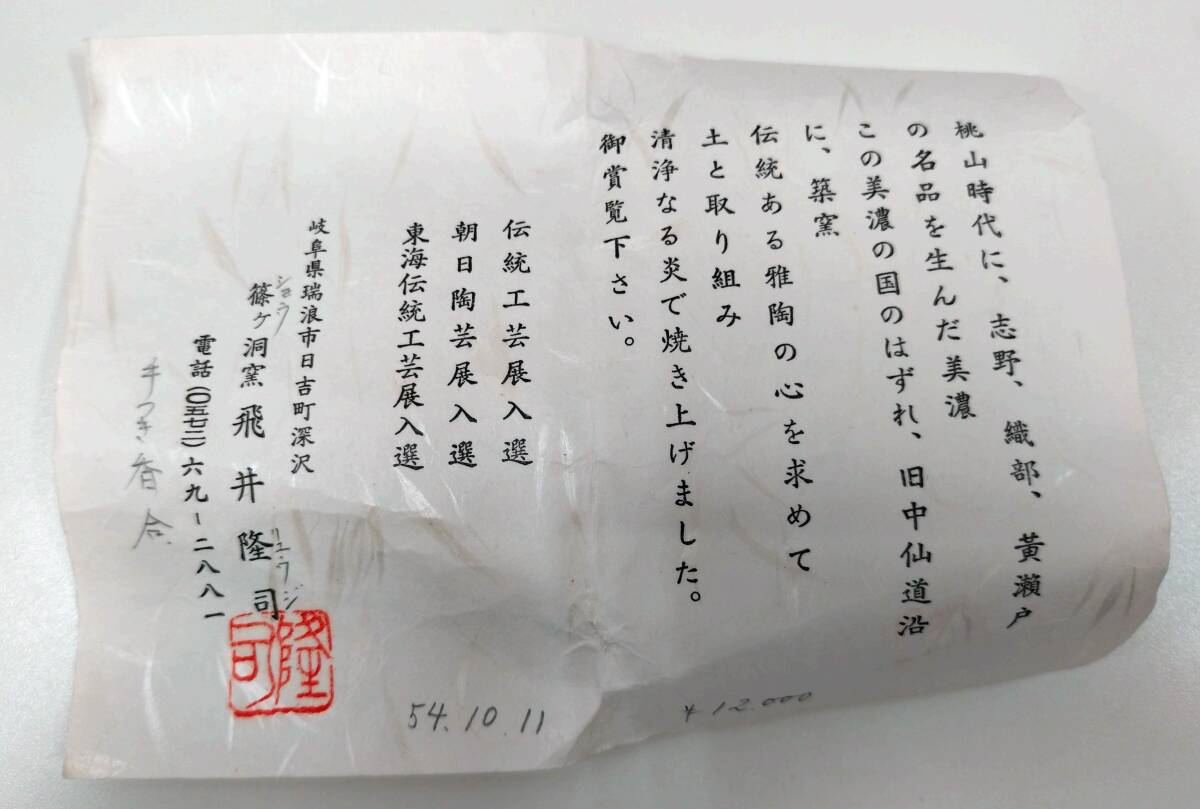 桃山時代に、志野、織部、黄瀬戸
の名品を生んだ美濃
この美濃の国のはずれ、旧中仙道沿
に、築窯
伝統ある雅陶の心を求めて
土と取り組み
清浄なる炎で焼き上げました。
御賞覧下さい。
伝統工芸展入選
朝日陶芸展入選
東海伝統工芸展入選
岐阜県瑞浪市日吉町深沢
ショウ
篠ヶ洞窯 飛井隆司
リュウジ
隆司
電話(〇五七二)六九-二八八一
香合
54.10.11
¥12.000